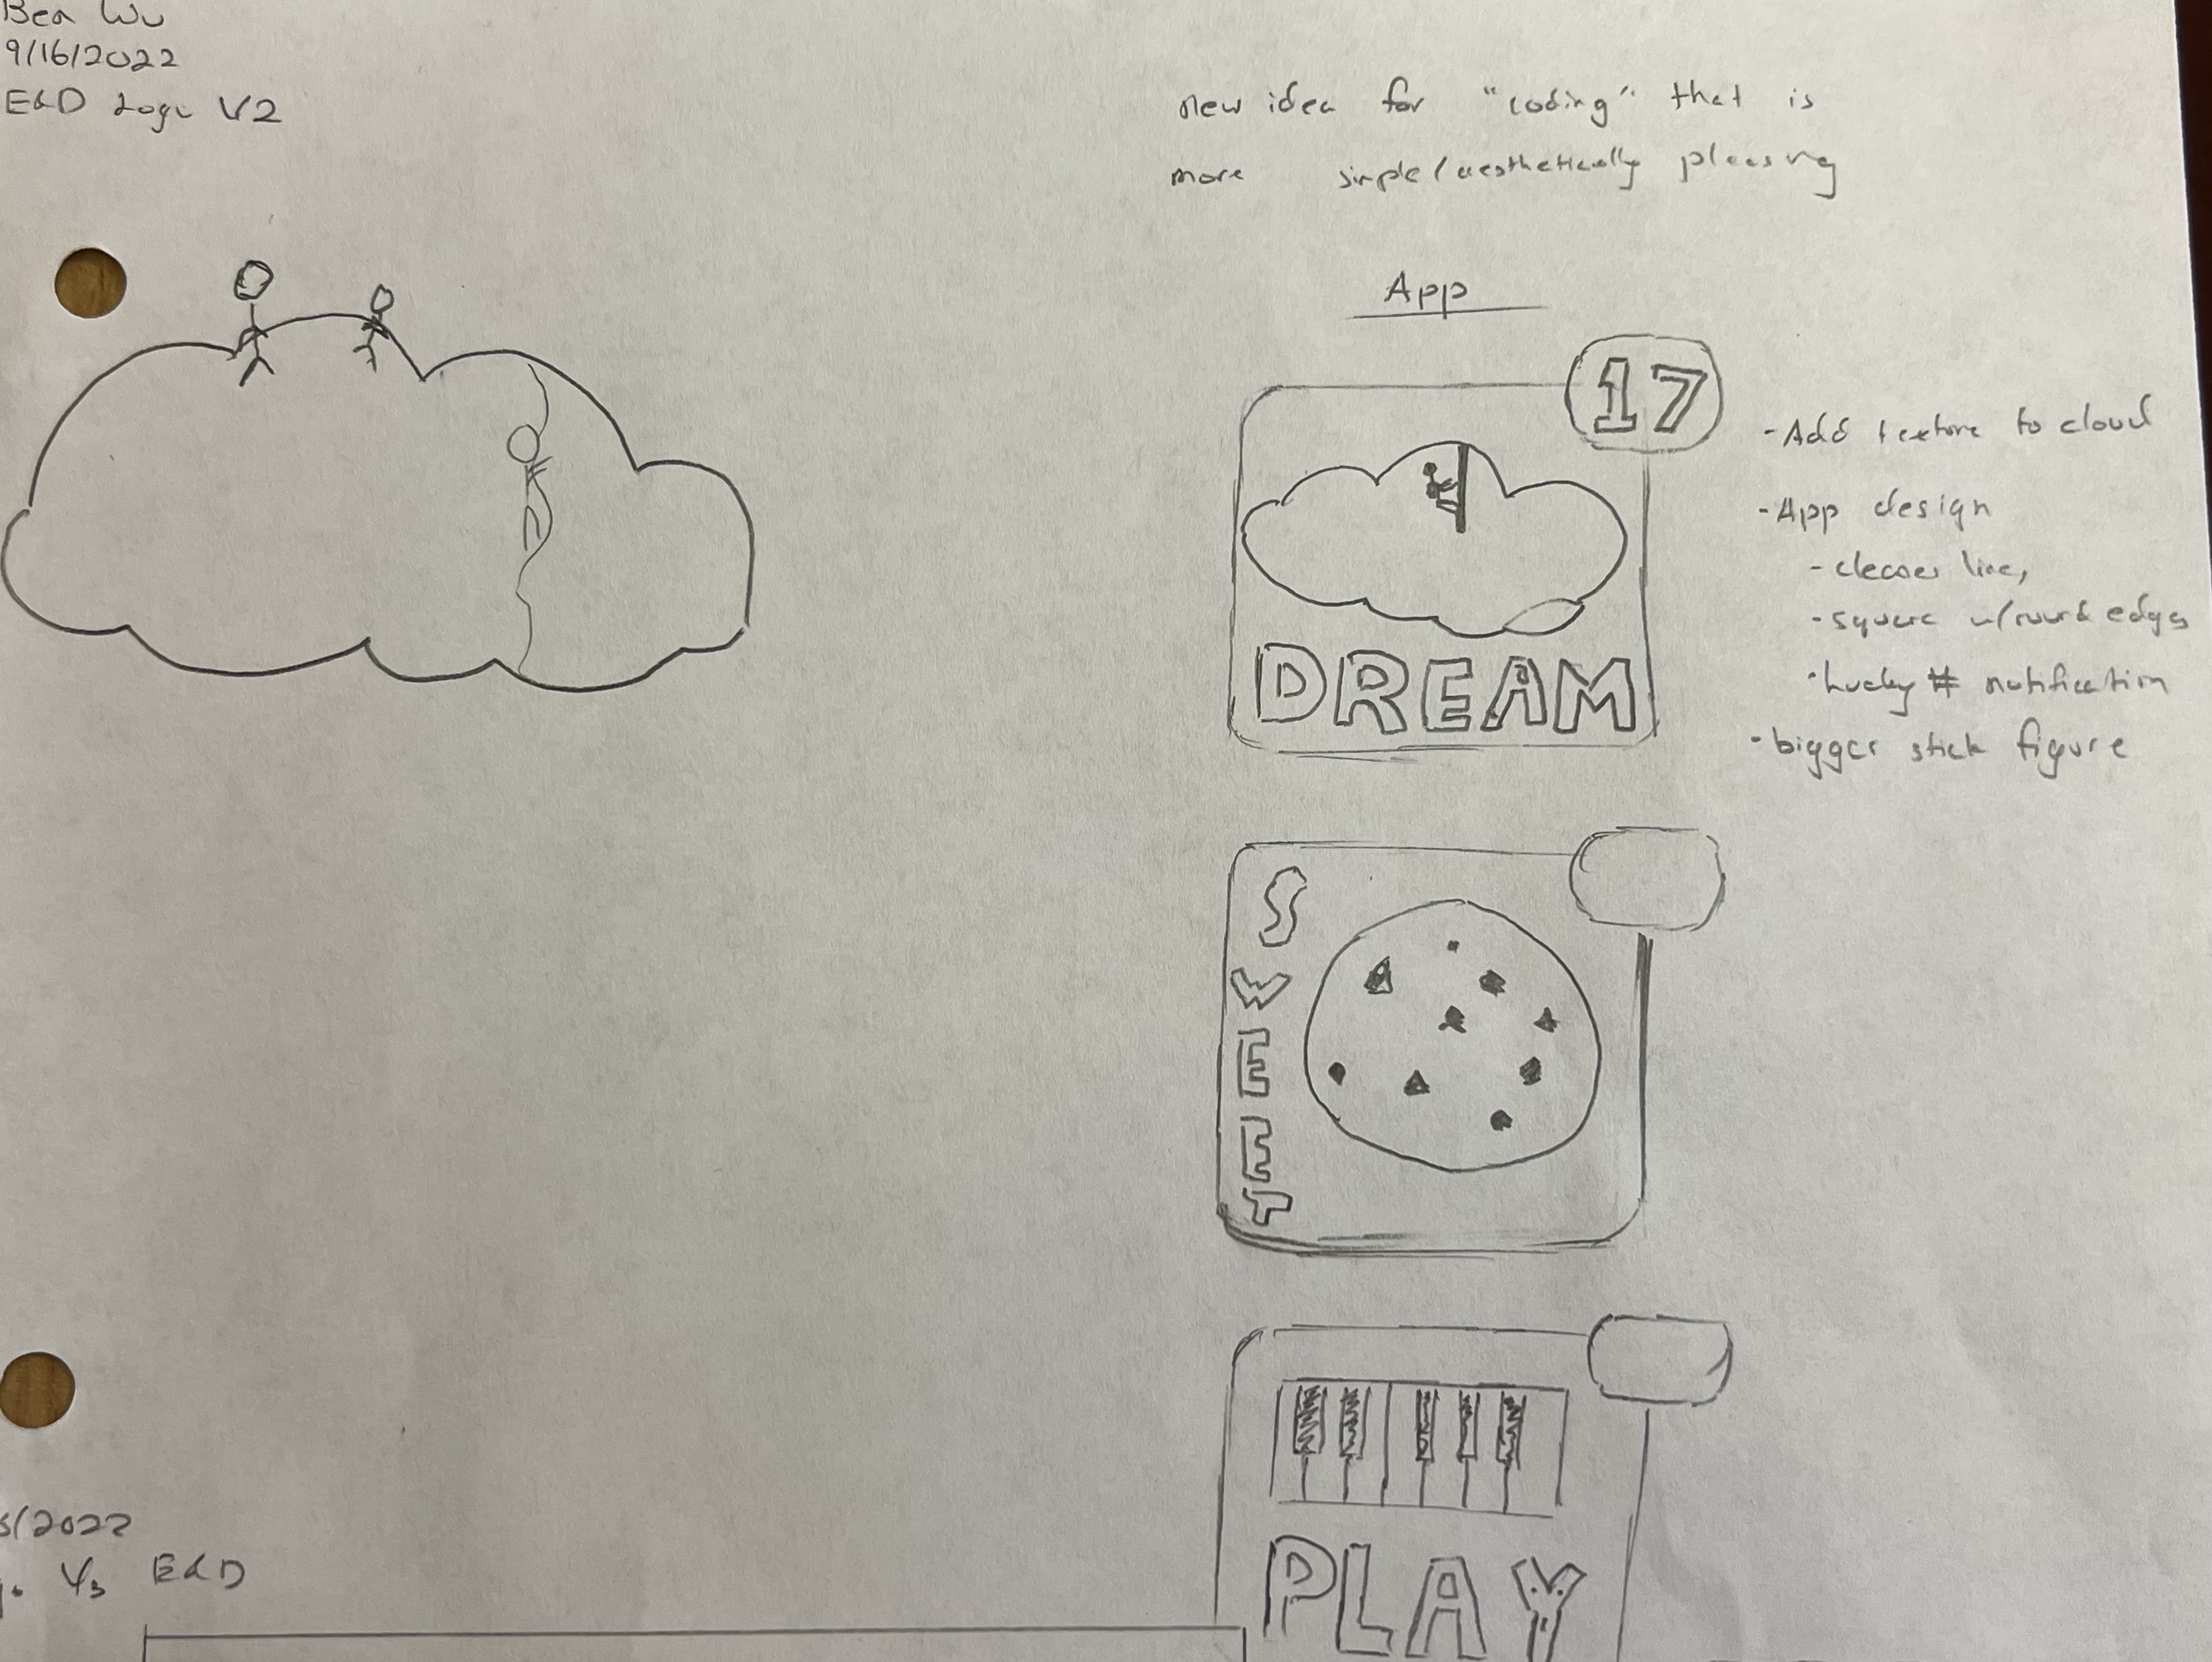 Ben Wu
9/16/2022
E&D Logo V2
new idea for "coding" that is
more simple/aesthetically pleasing
App
17
DREAM
- Add texture to cloud
- App design
- cleaner lines
- square w/round edges
- Lucky # notification
- bigger stick figure
SWEET
PLAY
/2022
V3 E&D